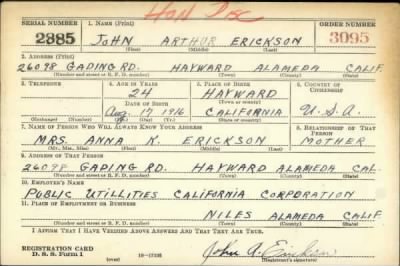 HON DISC
SERIAL NUMBER 1. NAME (Print) ORDER NUMBER
2385 JOHN ARTHUR ERICKSON 3095
(First) (Middle) (Last)
2. ADDRESS (Print)
26098 GADING RD. HAYWARD ALAMEDA CALIF.
(Number and street or R. F. D. number) (Town) (County) (State)
3. TELEPHONE 4. AGE IN YEARS 5. PLACE OF BIRTH 6. COUNTRY OF CITIZENSHIP
24 HAYWARD
DATE OF BIRTH (Town or county)
Aug. 17 1916 CALIFORNIA U.S.A.
(Exchange) (Number) (Mo.) (Day) (Yr.) (State or country)
7. NAME OF PERSON WHO WILL ALWAYS KNOW YOUR ADDRESS 8. RELATIONSHIP OF THAT PERSON
MRS. ANNA K. ERICKSON MOTHER
(Mr., Mrs., Miss) (First) (Middle) (Last)
9. ADDRESS OF THAT PERSON
26098 GADING RD. HAYWARD ALAMEDA CAL.
(Number and street or R. F. D. number) (Town) (County) (State)
10. EMPLOYER'S NAME
PUBLIC UTILLITIES CALIFORNIA CORPORATION
11. PLACE OF EMPLOYMENT OR BUSINESS
NILES ALAMEDA CALIF
(Number and street or R. F. D. number) (Town) (County) (State)
I AFFIRM THAT I HAVE VERIFIED ABOVE ANSWERS AND THAT THEY ARE TRUE.
REGISTRATION CARD
D. S. S. Form 1 (over) 16—17105 John A. Erickson
(Registrant's signature)